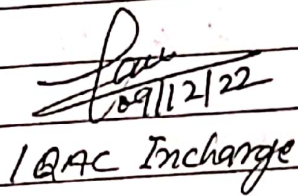 09/12/22
IQAC Incharge